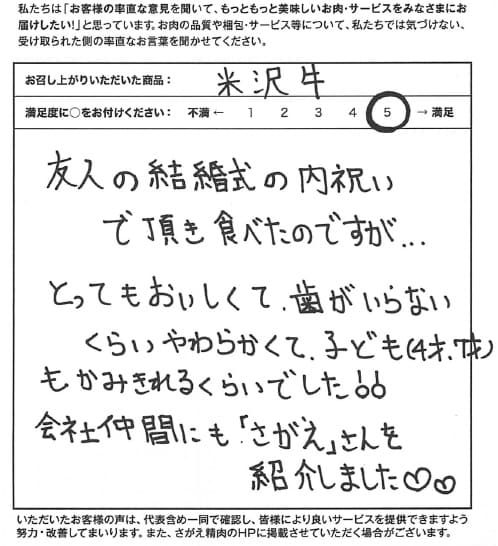 私たちは「お客様の率直な意見を聞いて、もっともっと美味しいお肉・サービスをみなさまにお
届けしたい!」と思っています。お肉の品質や梱包・サービス等について、私たちでは気づけない、
受け取られた側の率直なお言葉を聞かせてください。
お召し上がりいただいた商品： 米沢牛
満足度に○をお付けください： 不満 ← 1 2 3 4 5 → 満足
友人の結婚式の内祝い
で頂き食べたのですが...
とってもおいしくて、歯がいらない
くらいやわらかくて、子ども(4才、7才)
もかみきれるくらいでした!!
会社仲間にも「さがえ」さんを
紹介しました♡♡
いただいたお客様の声は、代表含め一同で確認し、皆様により良いサービスを提供できますよう
努力・改善してまいります。また、さがえ精肉のHPに掲載させていただく場合がございます。